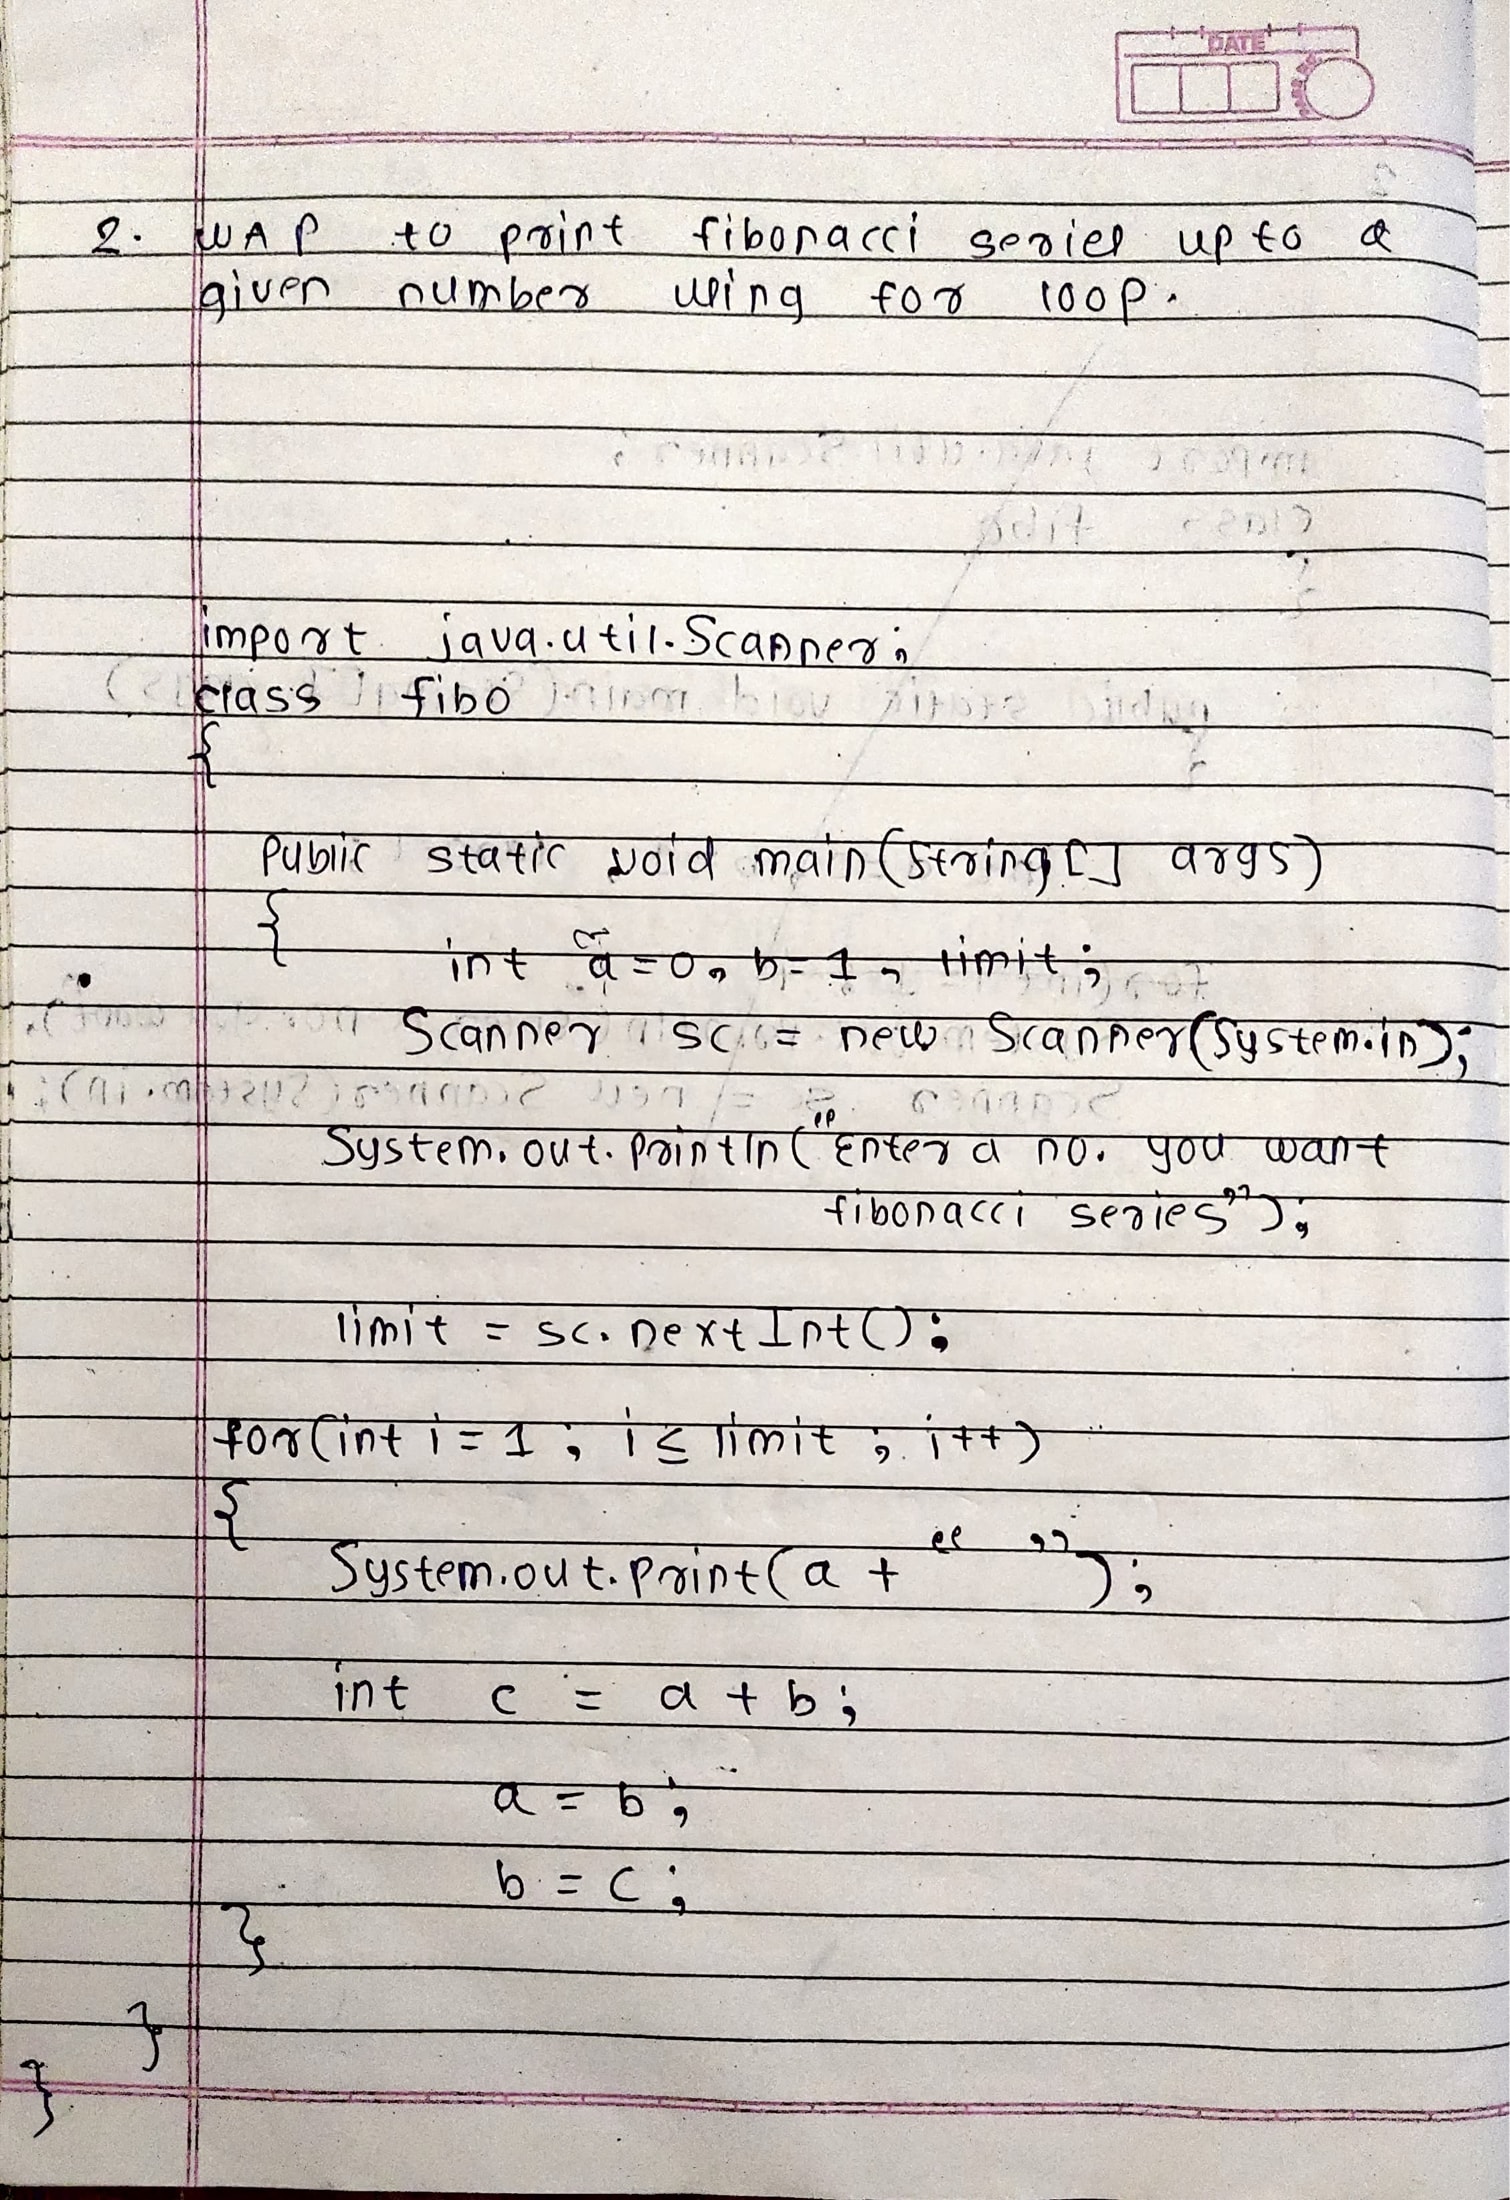 DATE
2. WAP to print fibonacci series upto a
given number using for loop.
import java.util.Scanner;
class fibo
{
public static void main(String[] args)
{
int a=0, b=1, limit;
Scanner sc = new Scanner(System.in);
System.out.println("Enter a no. you want
fibonacci series");
limit = sc.nextInt();
for(int i=1; i≤limit; i++)
{
System.out.print(a + " ");
int c = a + b;
a = b;
b = c;
}
}
}